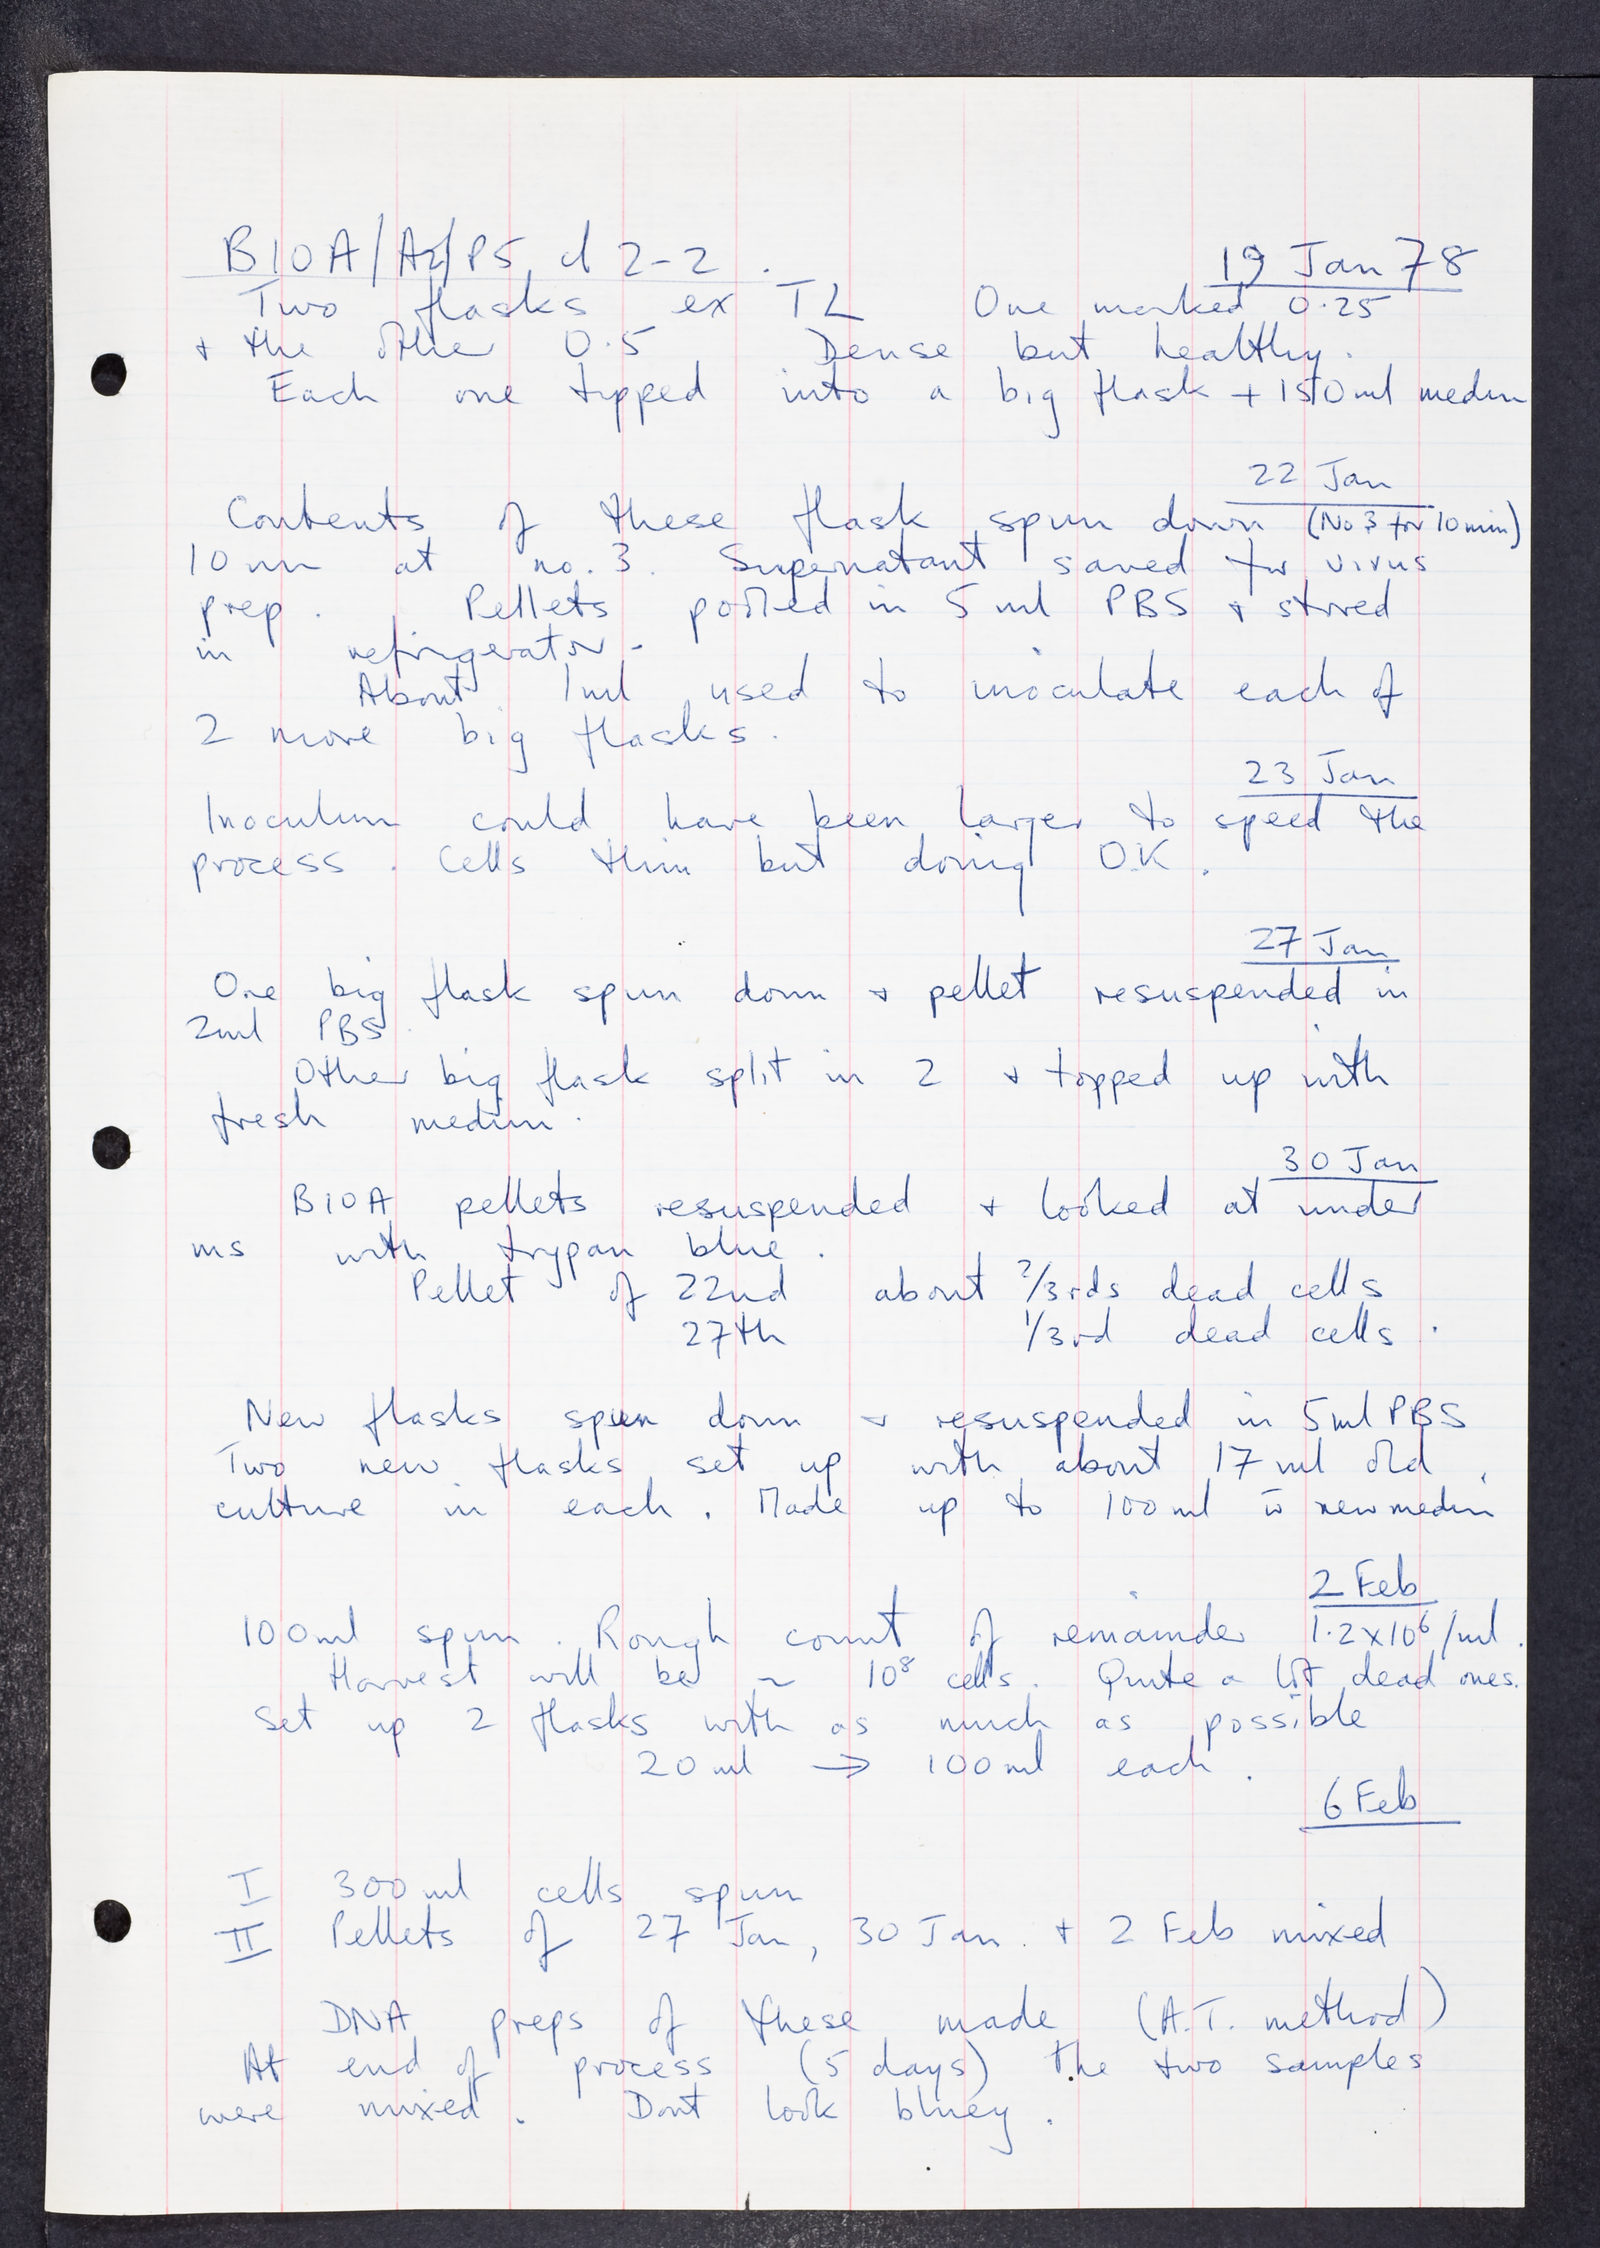 B10A/A2/P5 cl 2-2. 19 Jan 78
Two flasks ex TL One marked 0.25
+ the other 0.5 Dense but healthy.
Each one tipped into a big flask + 150ml medm
22 Jan
Contents of these flask spun down (No 3 for 10 min)
10 mn at no. 3. Supernatant saved for virus
prep. Pellets pooled in 5 ml PBS + stored
in refrigerator.
About 1ml used to inoculate each of
2 more big flasks.
23 Jan
Inoculum could have been larger to speed the
process. Cells thin but doing O.K.
27 Jan
One big flask spun down + pellet resuspended in
2ml PBS.
Other big flask split in 2 + topped up with
fresh medium.
30 Jan
B10A pellets resuspended + looked at under
ms with trypan blue.
Pellet of 22nd about 2/3rds dead cells
27th 1/3rd dead cells.
New flasks spun down + resuspended in 5ml PBS
Two new flasks set up with about 17 ml old
culture in each. Made up to 100ml w̄ new medm
2 Feb
100ml spun. Rough count of remainder 1.2x10⁶/ml.
Harvest will be ~ 10⁸ cells. Quite a lot dead ones.
Set up 2 flasks with as much as possible
20 ml → 100 ml each.
6 Feb
I 300ml cells spun
II Pellets of 27 Jan, 30 Jan. + 2 Feb mixed
DNA preps of these made (A.T. method)
At end of process (5 days) the two samples
were mixed. Dont look bluey.